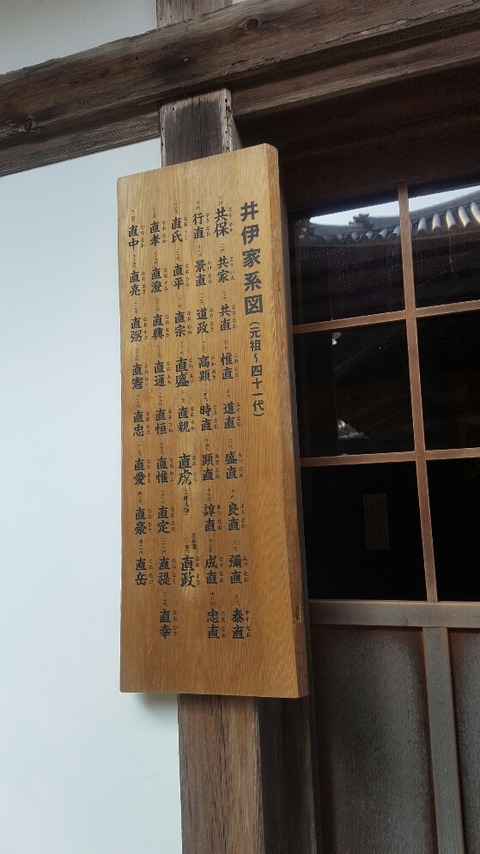 井伊家系図（元祖～四十一代）
共保 共家 共直 惟直 道直 盛直 良直 彌直 泰直
行直 景直 道政 高顕 時直 顕直 諄直 成直 忠直
直氏 直平 直宗 直盛 直親 直虎 直政
直孝 直澄 直興 直通 直恒 直惟 直定 直禔 直幸
直中 直亮 直弼 直憲 直忠 直愛 直豪 直岳